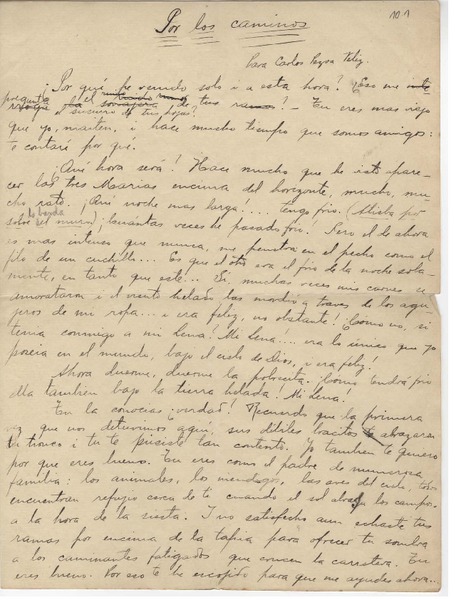 101
Por los caminos
Para Carlos Pezoa Véliz.
¿Por qué he venido solo i a esta hora? ¿Eso me
pregunta el susurro de tus hojas? – Tu eres mas viejo
que yo, maiten, i hace mucho tiempo que somos amigos:
te contaré por qué.
¿Qué hora será? Hace mucho que he visto apare-
cer las tres Marias encima del horizonte, mucho, mu-
cho rato. ¡Qué noche mas larga!... Tengo frio.
¡cuántas veces he pasado frio. Pero el de ahora
es mas intenso que nunca, me penetra en el pecho como el
filo de un cuchillo... Es que el otro era el frio de la noche sola-
mente, en tanto que este... Si muchas veces mis carnes se
amorataron i el viento helado las mordio a traves de los aguje-
ros de mi ropa... i era feliz, no obstante! ¡Cómo no, si
tenia conmigo a mi Lena! Mi Lena... era lo unico que yo
poseia en el mundo, bajo el cielo de Dios, i era feliz!
Ahora duerme, duerme la pobrecita. ¡Cómo tendrá frio
ella tambien bajo la tierra helada! Mi Lena!
Tu la conocias ¿verdad? Recuerdo que la primera
vez que nos detuvimos aqui, sus débiles bracitos abrazaron
tu tronco i tu te pusiste tan contento. Yo tambien te quiero
por que eres bueno. Tu eres como el padre de numerosa
familia: los animales, los mendigos, las aves del cielo, todos
encuentran refujio cerca de ti cuando el sol abrasa los campos,
a la hora de la siesta. I no satisfecho aun echaste tus
ramas por encima de la tapia para ofrecer tu sombra
a los caminantes fatigados que cruzan la carretera. Tu
eres bueno. Por eso te he escojido para que me ayudes ahora...